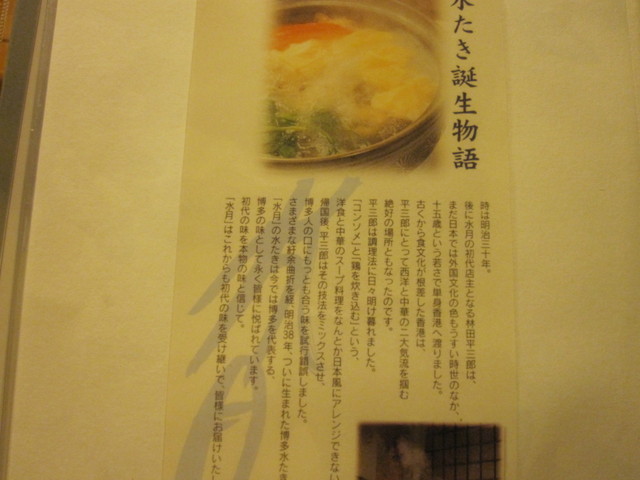 水たき誕生物語
時は明治三十年。
後に水月の初代店主となる林田平三郎は、
まだ日本では外国文化の色もうすい時世のなか、
十五歳という若さで単身香港へ渡りました。
古くから食文化が根差した香港は、
平三郎にとって西洋と中華の二大気流を掴む
絶好の場所ともなったのです。
平三郎は調理法に日々明け暮れました。
「コンソメ」と「鶏を炊き込む」という、
洋食と中華のスープ料理をなんとか日本風にアレンジできない
帰国後、平三郎はその技法をミックスさせ、
博多人の口にもっとも合う味を試行錯誤しました。
さまざまな紆余曲折を経、明治38年、ついに生まれた博多水たき
「水月」の水たきは今では博多を代表する、
博多の味として永く皆様に悦ばれています。
初代の味を本物の味と信じて。
「水月」はこれからも初代の味を受け継いで、皆様にお届けいたし